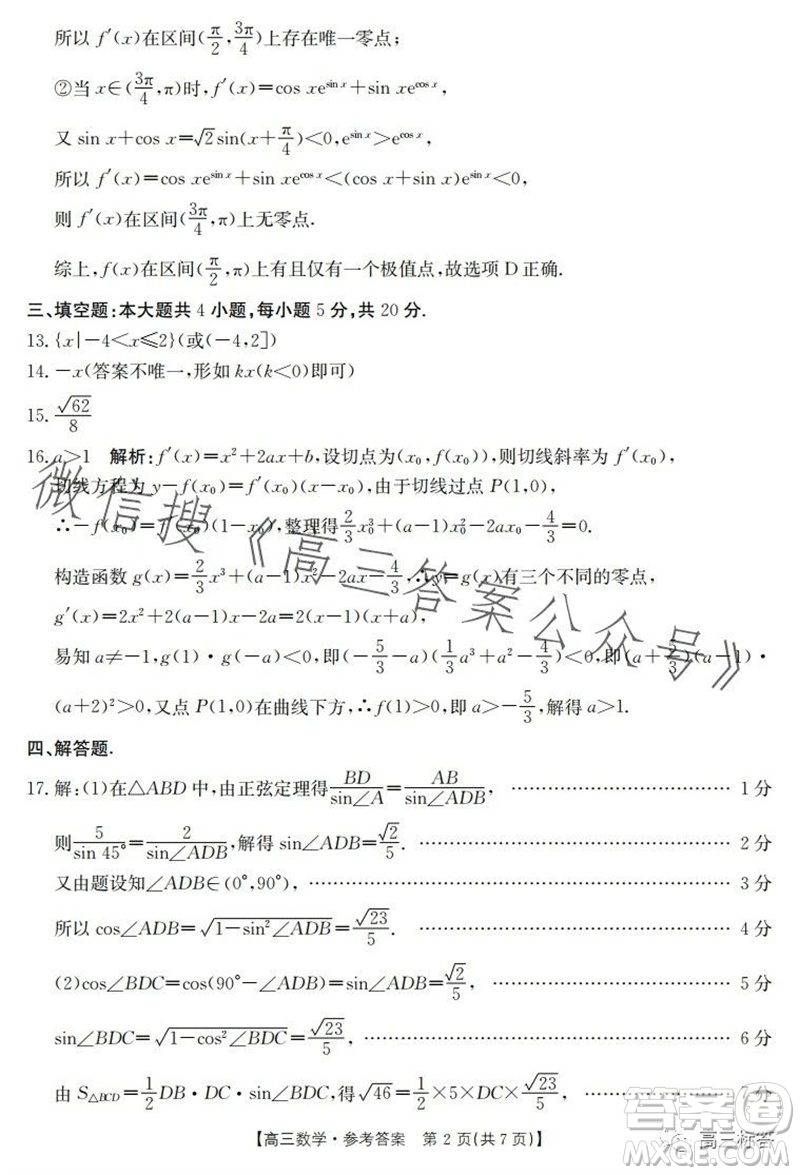 所以 f′(x)在区间(π/2,3π/4)上存在唯一零点;
②当 x∈(3π/4,π)时,f′(x)=cos xe^{sin x}+sin xe^{cos x},
又 sin x+cos x=√2sin(x+π/4)<0,e^{sin x}>e^{cos x},
所以 f′(x)=cos xe^{sin x}+sin xe^{cos x}<(cos x+sin x)e^{sin x}<0,
则 f′(x)在区间(3π/4,π)上无零点.
综上,f(x)在区间(π/2,π)上有且仅有一个极值点,故选项 D 正确.
三、填空题:本大题共 4 小题,每小题 5 分,共 20 分.
13.{x|-4<x≤2}(或(-4,2])
14.-x(答案不唯一,形如 kx(k<0)即可)
15.√62/8
16.a>1 解析:f′(x)=x²+2ax+b,设切点为(x₀,f(x₀)),则切线斜率为 f′(x₀),
切线方程为 y-f(x₀)=f′(x₀)(x-x₀),由于切线过点 P(1,0),
∴-f(x₀)=f′(x₀)(1-x₀),整理得2/3x₀³+(a-1)x₀²-2ax₀-4/3=0.
构造函数 g(x)=2/3x³+(a-1)x²-2ax-4/3,∴y=g(x)有三个不同的零点,
g′(x)=2x²+2(a-1)x-2a=2(x-1)(x+a),
易知 a≠-1,g(1)·g(-a)<0,即(-5/3-a)(1/3a³+a²-4/3)<0,即(a+2/3)(a-1)·
(a+2)²>0,又点 P(1,0)在曲线下方,∴f(1)>0,即 a>-5/3,解得 a>1.
四、解答题.
17.解:(1)在△ABD 中,由正弦定理得BD/sin∠A=AB/sin∠ADB, ………… 1 分
则5/sin 45°=2/sin∠ADB,解得 sin∠ADB=√2/5. ………… 2 分
又由题设知∠ADB∈(0°,90°), ………… 3 分
所以 cos∠ADB=√(1-sin²∠ADB)=√23/5. ………… 4 分
(2)cos∠BDC=cos(90°-∠ADB)=sin∠ADB=√2/5, ………… 5 分
sin∠BDC=√(1-cos²∠BDC)=√23/5, ………… 6 分
由 S△BCD=1/2DB·DC·sin∠BDC,得√46=1/2×5×DC×√23/5, ………… 7 分
【高三数学·参考答案 第 2 页(共 7 页)】
微信搜《高三答案公众号》
高三标答